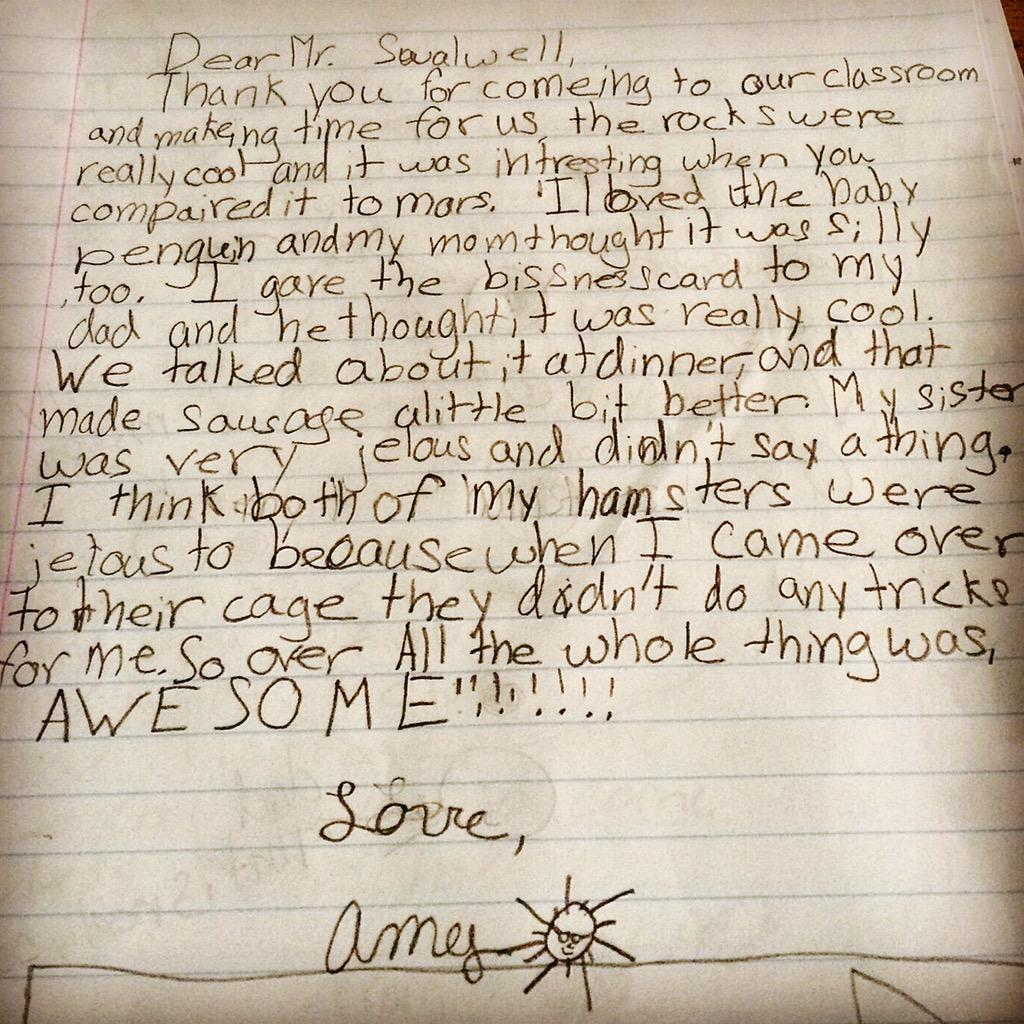 Dear Mr. Swalwell,
Thank you for comeing to our classroom
and makeing time for us, the rocks were
really cool and it was intresting when you
compaired it to mars. I loved the baby
penguin and my mom thought it was silly
too. I gave the bissnesscard to my
dad and he thought it was really cool.
We talked about it at dinner, and that
made sausage alittle bit better. My sister
was very jelous and didn't say a thing.
I think both of my hamsters were
jelous to because when I came over
to their cage they didn't do any tricks
for me. So over All the whole thing was,
AWESOME!!!!!!!!
Love,
Amy